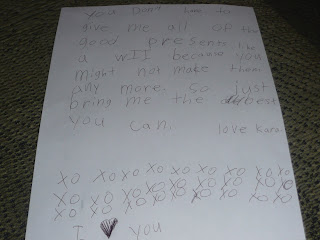 you Dont have to
give me all of the
good presents like
a wII because you
might not make them
any more. so just
bring me the best
you can.
love Kara
XO XO XO XO XO XO XO XO
XO XO XO XO XO XO XO XO
XO XO XO XO XO XO XO
I ♥ you